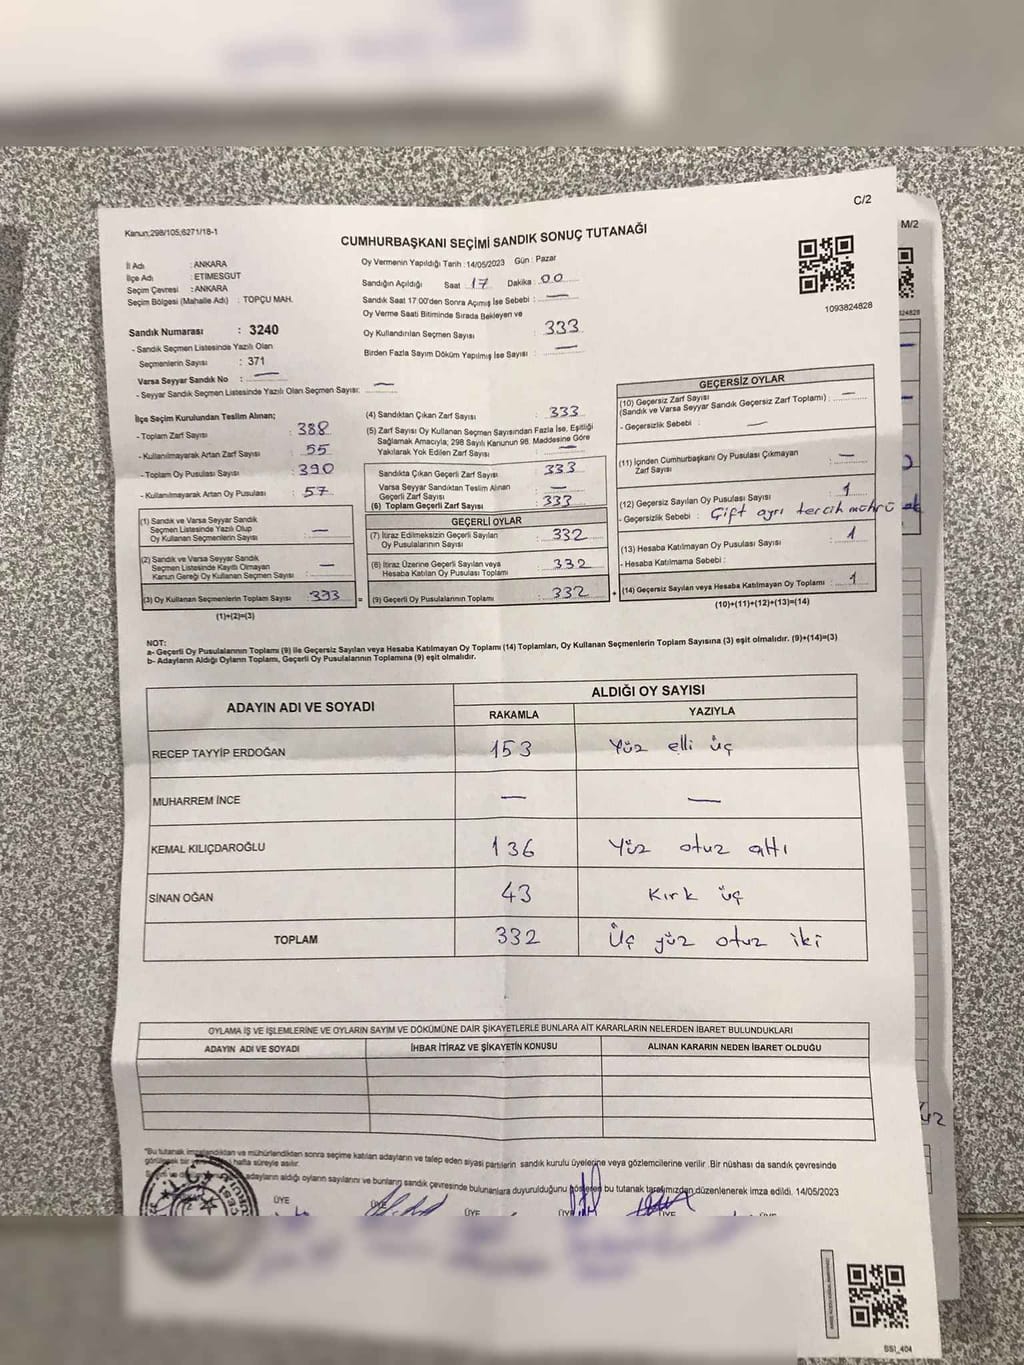 C/2
M/2
Kanun;298/105;6271/18-1
CUMHURBAŞKANI SEÇİMİ SANDIK SONUÇ TUTANAĞI
İl Adı : ANKARA
İlçe Adı : ETİMESGUT
Seçim Çevresi : ANKARA
Seçim Bölgesi (Mahalle Adı) : TOPÇU MAH.
Oy Vermenin Yapıldığı Tarih : 14/05/2023 Gün : Pazar
Sandığın Açıldığı Saat : 17 Dakika : 00
Sandık Saat 17:00'den Sonra Açımış İse Sebebi : —
Oy Verme Saati Bitiminde Sırada Bekleyen ve
Oy Kullandırılan Seçmen Sayısı : 333
Birden Fazla Sayım Döküm Yapılmış İse Sayısı : —
1093824828
Sandık Numarası : 3240
- Sandık Seçmen Listesinde Yazılı Olan
Seçmenlerin Sayısı : 371
Varsa Seyyar Sandık No : —
- Seyyar Sandık Seçmen Listesinde Yazılı Olan Seçmen Sayısı: —
İlçe Seçim Kurulundan Teslim Alınan;
- Toplam Zarf Sayısı : 388
- Kullanılmayarak Artan Zarf Sayısı : 55
- Toplam Oy Pusulası Sayısı : 390
- Kullanılmayarak Artan Oy Pusulası : 57
(1) Sandık ve Varsa Seyyar Sandık
Seçmen Listesinde Yazılı Olup
Oy Kullanan Seçmenlerin Sayısı : —
(2) Sandık ve Varsa Seyyar Sandık
Seçmen Listesinde Kayıtlı Olmayan
Kanun Gereği Oy Kullanan Seçmen Sayısı : —
(3) Oy Kullanan Seçmenlerin Toplam Sayısı : 333 =
(1)+(2)=(3)
(4) Sandıktan Çıkan Zarf Sayısı : 333
(5) Zarf Sayısı Oy Kullanan Seçmen Sayısından Fazla İse, Eşitliği
Sağlamak Amacıyla; 298 Sayılı Kanunun 98. Maddesine Göre
Yakılarak Yok Edilen Zarf Sayısı : —
Sandıkta Çıkan Geçerli Zarf Sayısı : 333
Varsa Seyyar Sandıktan Teslim Alınan
Geçerli Zarf Sayısı : —
(6) Toplam Geçerli Zarf Sayısı : 333
GEÇERLİ OYLAR
(7) İtiraz Edilmeksizin Geçerli Sayılan
Oy Pusulalarının Sayısı : 332
(8) İtiraz Üzerine Geçerli Sayılan veya
Hesaba Katılan Oy Pusulası Toplamı : 332
(9) Geçerli Oy Pusulalarının Toplamı : 332 +
GEÇERSİZ OYLAR
(10) Geçersiz Zarf Sayısı
(Sandık ve Varsa Seyyar Sandık Geçersiz Zarf Toplamı) : —
- Geçersizlik Sebebi : —
(11) İçinden Cumhurbaşkanı Oy Pusulası Çıkmayan
Zarf Sayısı : —
(12) Geçersiz Sayılan Oy Pusulası Sayısı : 1
- Geçersizlik Sebebi : Çift ayrı tercih mührü
(13) Hesaba Katılmayan Oy Pusulası Sayısı : 1
- Hesaba Katılmama Sebebi :
(14) Geçersiz Sayılan veya Hesaba Katılmayan Oy Toplamı : 1
(10)+(11)+(12)+(13)=(14)
NOT:
a- Geçerli Oy Pusulalarının Toplamı (9) ile Geçersiz Sayılan veya Hesaba Katılmayan Oy Toplamı (14) Toplamları, Oy Kullanan Seçmenlerin Toplam Sayısına (3) eşit olmalıdır. (9)+(14)=(3)
b- Adayların Aldığı Oyların Toplamı, Geçerli Oy Pusulalarının Toplamına (9) eşit olmalıdır.
ADAYIN ADI VE SOYADI ALDIĞI OY SAYISI
RAKAMLA YAZIYLA
RECEP TAYYİP ERDOĞAN 153 Yüz elli üç
MUHARREM İNCE — —
KEMAL KILIÇDAROĞLU 136 Yüz otuz altı
SİNAN OĞAN 43 Kırk üç
TOPLAM 332 Üç yüz otuz iki
OYLAMA İŞ VE İŞLEMLERİNE VE OYLARIN SAYIM VE DÖKÜMÜNE DAİR ŞİKAYETLERLE BUNLARA AİT KARARLARIN NELERDEN İBARET BULUNDUKLARI
ADAYIN ADI VE SOYADI İHBAR İTİRAZ VE ŞİKAYETİN KONUSU ALINAN KARARIN NEDEN İBARET OLDUĞU
*Bu tutanak imzalandıktan ve mühürlendikten sonra seçime katılan adayların ve talep eden siyasi partilerin sandık kurulu üyelerine veya gözlemcilerine verilir. Bir nüshası da sandık çevresinde
hafta süreyle asılır.
adayların aldığı oyların sayılarını ve bunların sandık çevresinde bulunanlara duyurulduğunu gösteren bu tutanak tarafımızdan düzenlenerek imza edildi. 14/05/2023
ÜYE ÜYE ÜYE ÜYE ÜYE ÜYE
SS1_404